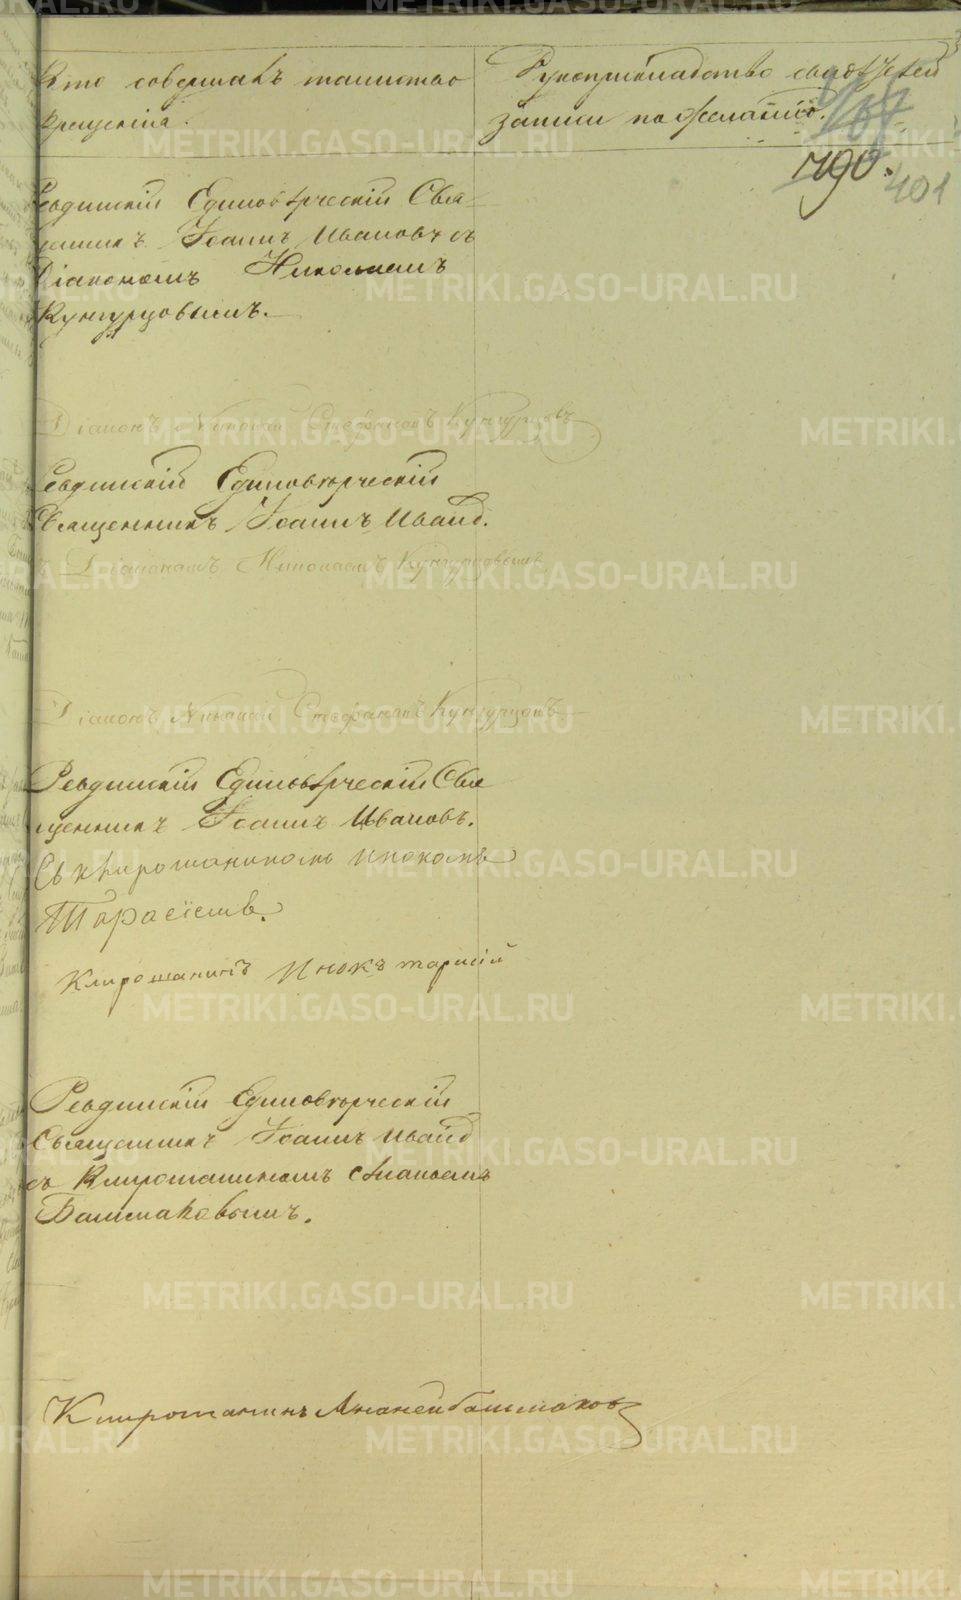 Кто совершалъ таинство
крещенія.
Рукоприкладство свидѣтелей
записи по желанію.
790.
401
Ревдинскій Единовѣрческій Свя-
щенникъ Іоаннъ Ивановъ съ
Діакономъ Николаемъ
Кунгурцовымъ.
Діаконъ Николай Стефановъ Кунгурцовъ
Ревдинскій Единовѣрческій
Священникъ Іоаннъ Иванов.
Діакономъ Николаемъ Кунгурцовымъ
Діаконъ Николай Стефановъ Кунгурцовъ
Ревдинскій Единовѣрческій Свя
щенникъ Іоаннъ Ивановъ.
Съ клирошаниномъ инокомъ
Тарасіемъ.
Клирошанинъ Инокъ тарасій
Ревдинскій Единовѣрческій
Священникъ Іоаннъ Иванов
съ Клирошаниномъ Ананьемъ
Башмаковымъ.
Клирошанинъ Ананей башмаковъ
METRIKI.GASO-URAL.RU